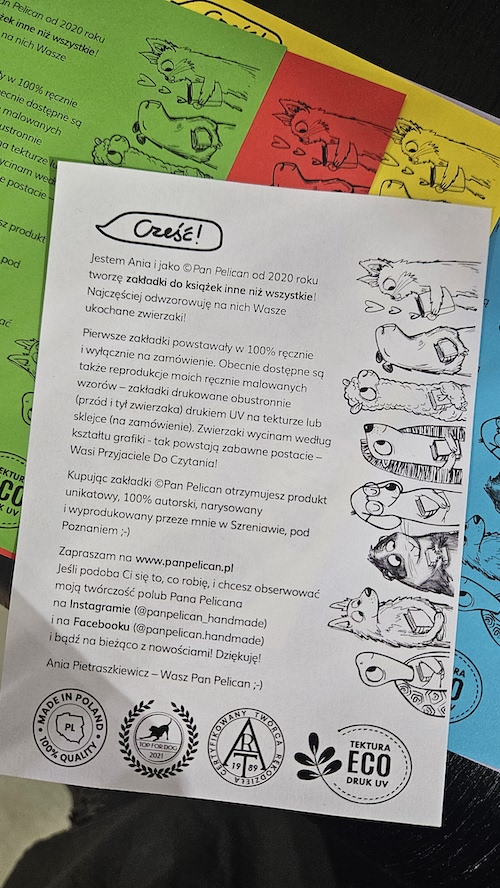 Pan Pelican od 2020 roku
żek inne niż wszystkie!
na nich Wasze
y w 100% ręcznie
ecnie dostępne są
malowanych
bustronnie
na tekturze lu
wycinam wed
e postacie –
sz produkt
pod
ać
TEKTUR
ECO
DRUK UV
Cześć!
Jestem Ania i jako ©Pan Pelican od 2020 roku
tworzę zakładki do książek inne niż wszystkie!
Najczęściej odwzorowuję na nich Wasze
ukochane zwierzaki!
Pierwsze zakładki powstawały w 100% ręcznie
i wyłącznie na zamówienie. Obecnie dostępne są
także reprodukcje moich ręcznie malowanych
wzorów – zakładki drukowane obustronnie
(przód i tył zwierzaka) drukiem UV na tekturze lub
sklejce (na zamówienie). Zwierzaki wycinam według
kształtu grafiki - tak powstają zabawne postacie –
Wasi Przyjaciele Do Czytania!
Kupując zakładki ©Pan Pelican otrzymujesz produkt
unikatowy, 100% autorski, narysowany
i wyprodukowany przeze mnie w Szreniawie, pod
Poznaniem ;-)
Zapraszam na www.panpelican.pl
Jeśli podoba Ci się to, co robię, i chcesz obserwować
moją twórczość polub Pana Pelicana
na Instagramie (@panpelican_handmade)
i na Facebooku (@panpelican.handmade)
i bądź na bieżąco z nowościami! Dziękuję!
Ania Pietraszkiewicz – Wasz Pan Pelican ;-)
MADE IN POLAND
PL
100% QUALITY
TOP FOR DOG
2021
CERTYFIKOWANY TWÓRCA RĘKODZIEŁA
1989
TEKTURA
ECO
DRUK UV